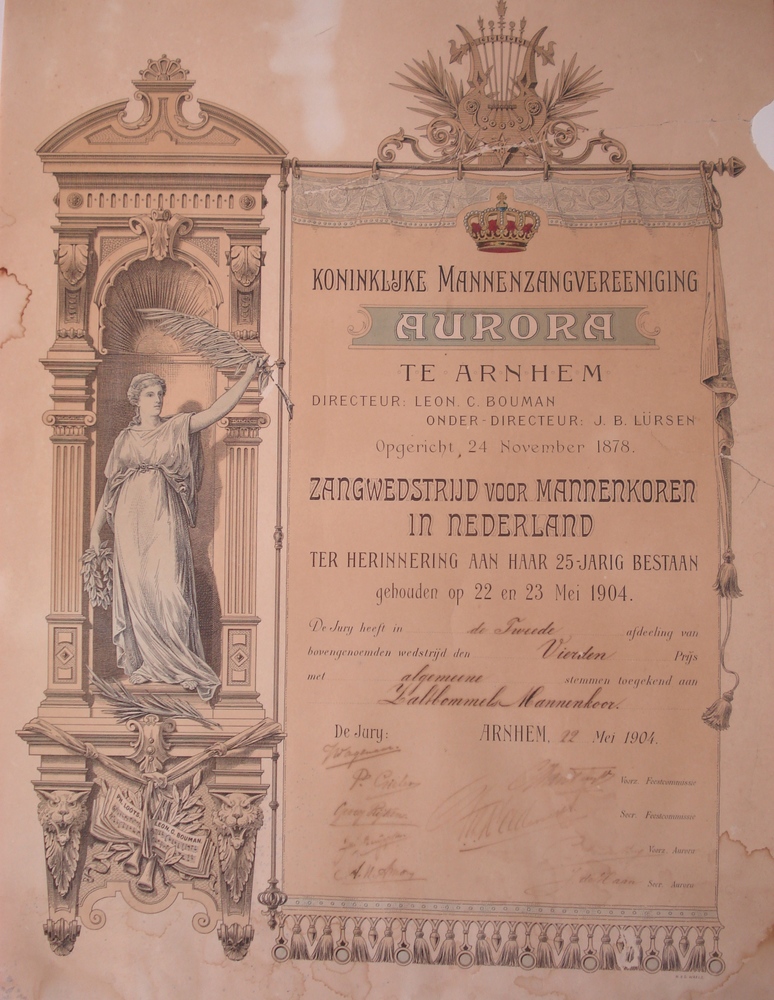 KONINKLIJKE MANNENZANGVEREENIGING
AURORA
TE ARNHEM
DIRECTEUR: LEON. C. BOUMAN
ONDER-DIRECTEUR: J. B. LÜRSEN
Opgericht, 24 November 1878.
ZANGWEDSTRIJD VOOR MANNENKOREN
IN NEDERLAND
TER HERINNERING AAN HAAR 25-JARIG BESTAAN
gehouden op 22 en 23 Mei 1904.
De Jury heeft in de Tweede afdeeling van
bovengenoemden wedstrijd den Vierden Prijs
met algemeene stemmen toegekend aan
Zaltbommels Mannenkoor.
De Jury: ARNHEM, 22 Mei 1904.
Voorz. Feestcommissie
Secr. Feestcommissie
Voorz. Aurora
de Haan Secr. Aurora
LEON C. BOUMAN